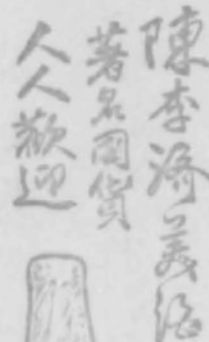 陳李濟義記
著名國貨
人人歡迎